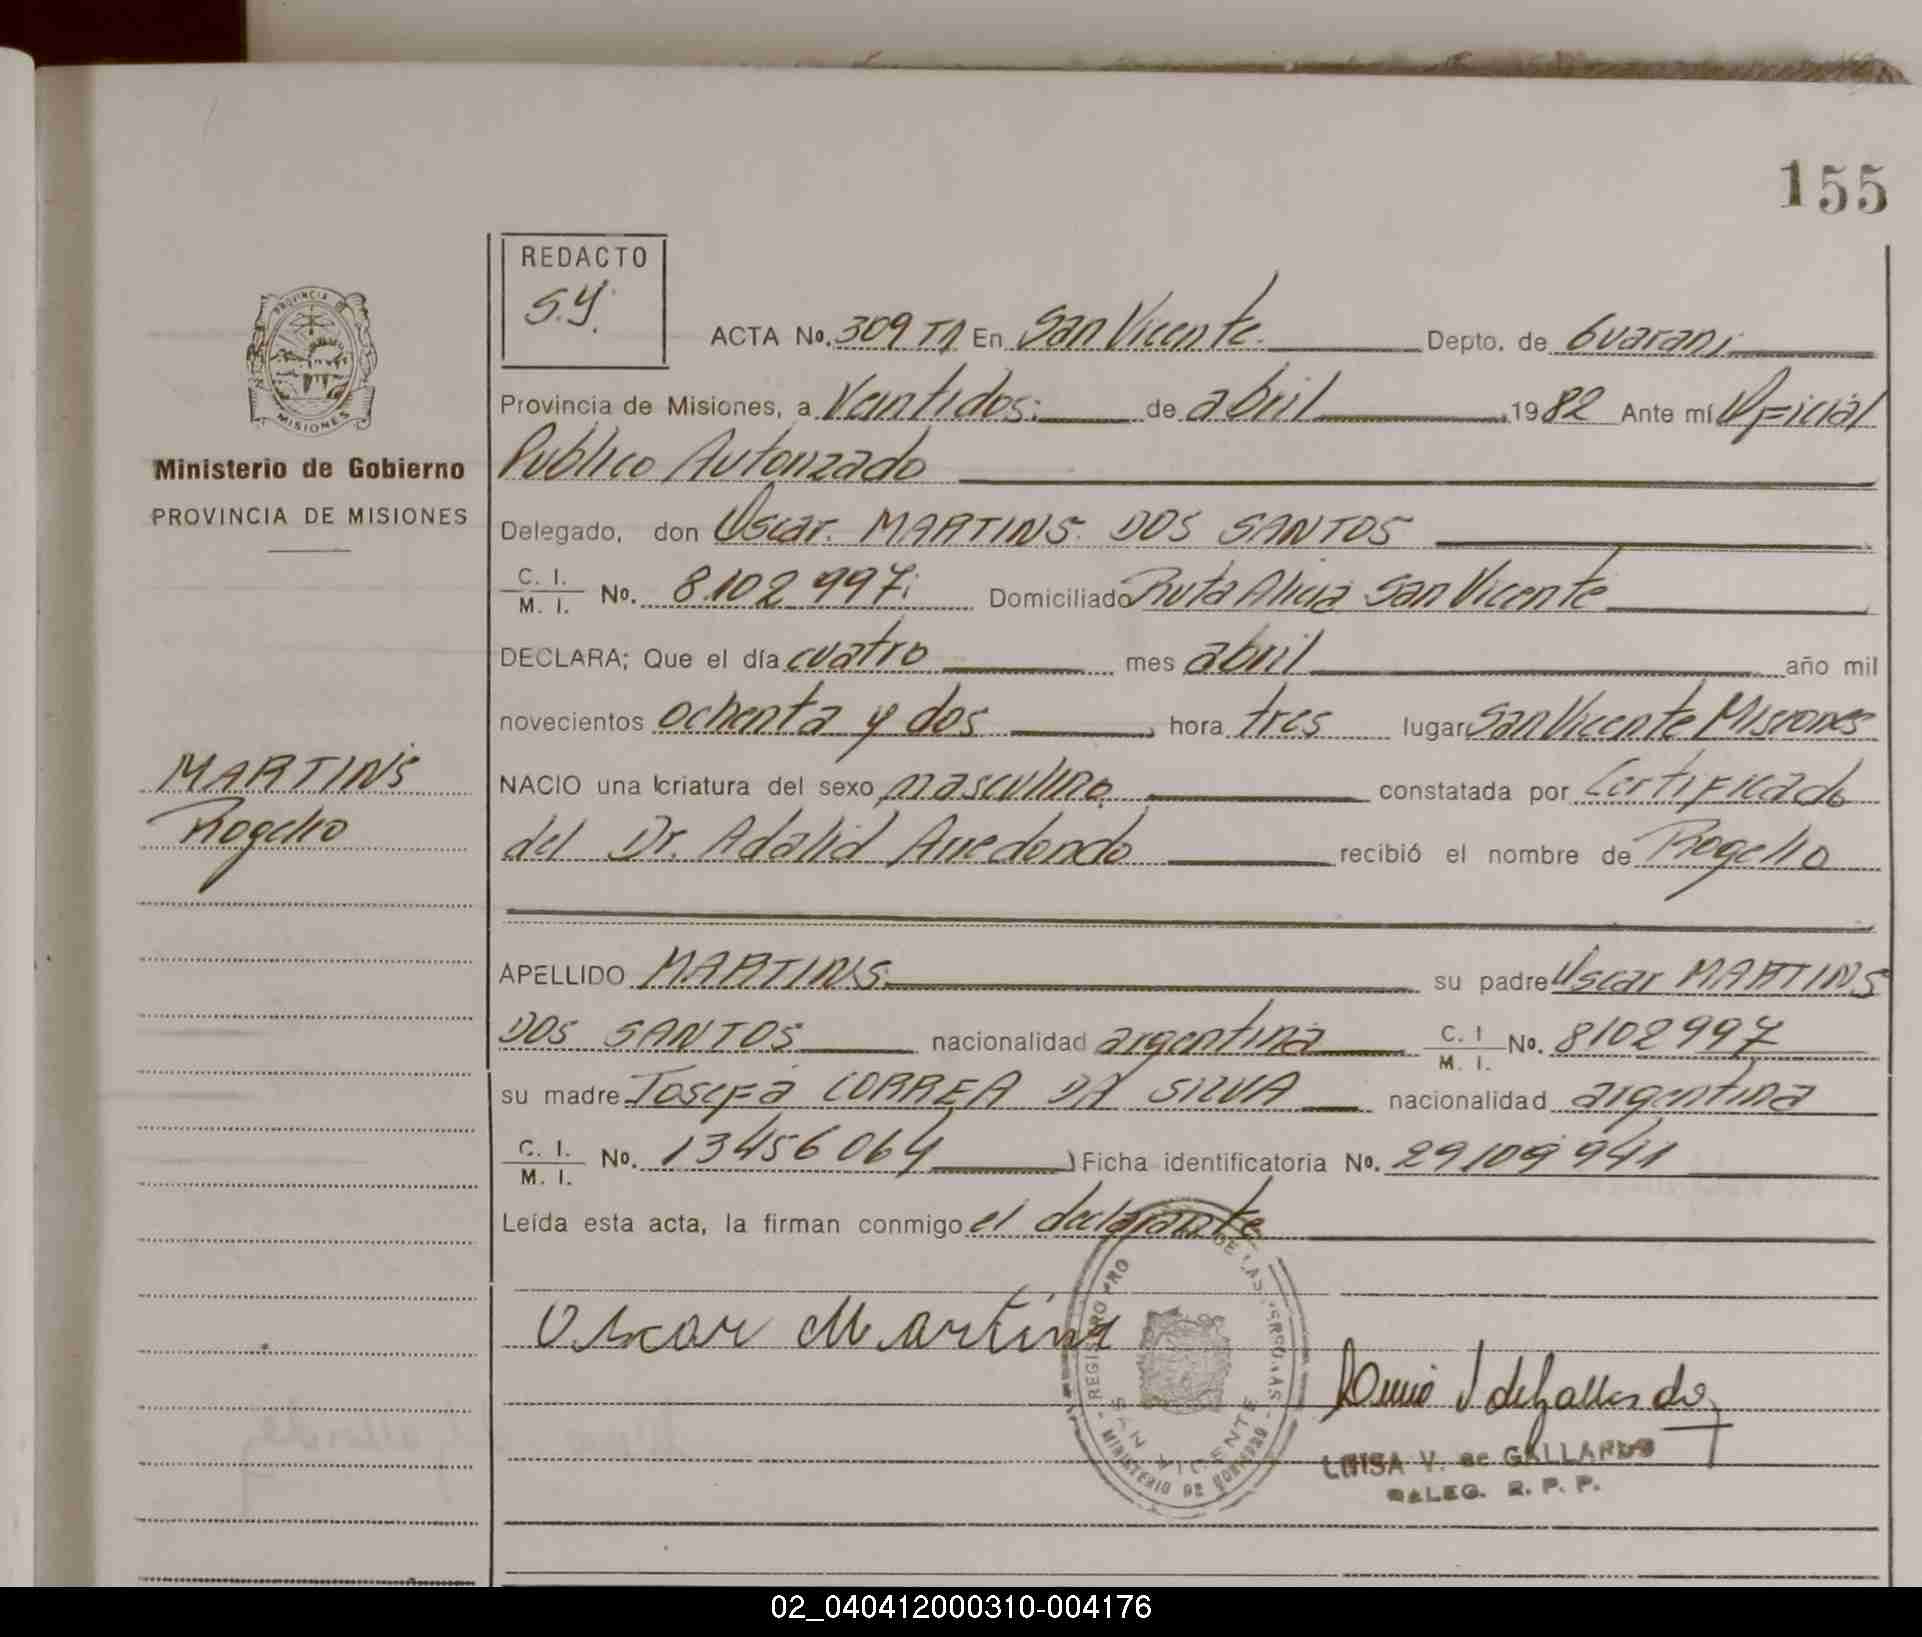 155
REDACTO
S.Y.
ACTA No. 309 TA En San Vicente. Depto. de Guarani
Provincia de Misiones, a Veintidos: de abril 1982 Ante mí Oficial
Publico Autorizado
Delegado, don Oscar. MARTINS. DOS SANTOS
C. I.
M. I. No. 8.102.997; Domiciliado Ruta Alicia San Vicente
DECLARA; Que el día cuatro mes abril año mil
novecientos ochenta y dos, hora tres lugar San Vicente Misiones
NACIO una criatura del sexo masculino constatada por Certificado
del Dr. Adalid Arredondo recibió el nombre de Rogelio
APELLIDO MARTINS. su padre Oscar MARTINS
DOS SANTOS nacionalidad argentina C. I
M. I. No. 8102997
su madre Josefa CORREA DA SILVA nacionalidad argentina
C. I.
M. I. No. 13456064 Ficha identificatoria No. 29109941
Leída esta acta, la firman conmigo el declarante
Oscar Martins
LUISA V. de GALLARDO
DALEG. R. P. P.
PROVINCIA DE
MISIONES
Ministerio de Gobierno
PROVINCIA DE MISIONES
MARTINS
Rogelio
REGISTRO PRO DE LAS PERSONAS
SAN VICENTE
MINISTERIO DE GOBIERNO
02_040412000310-004176